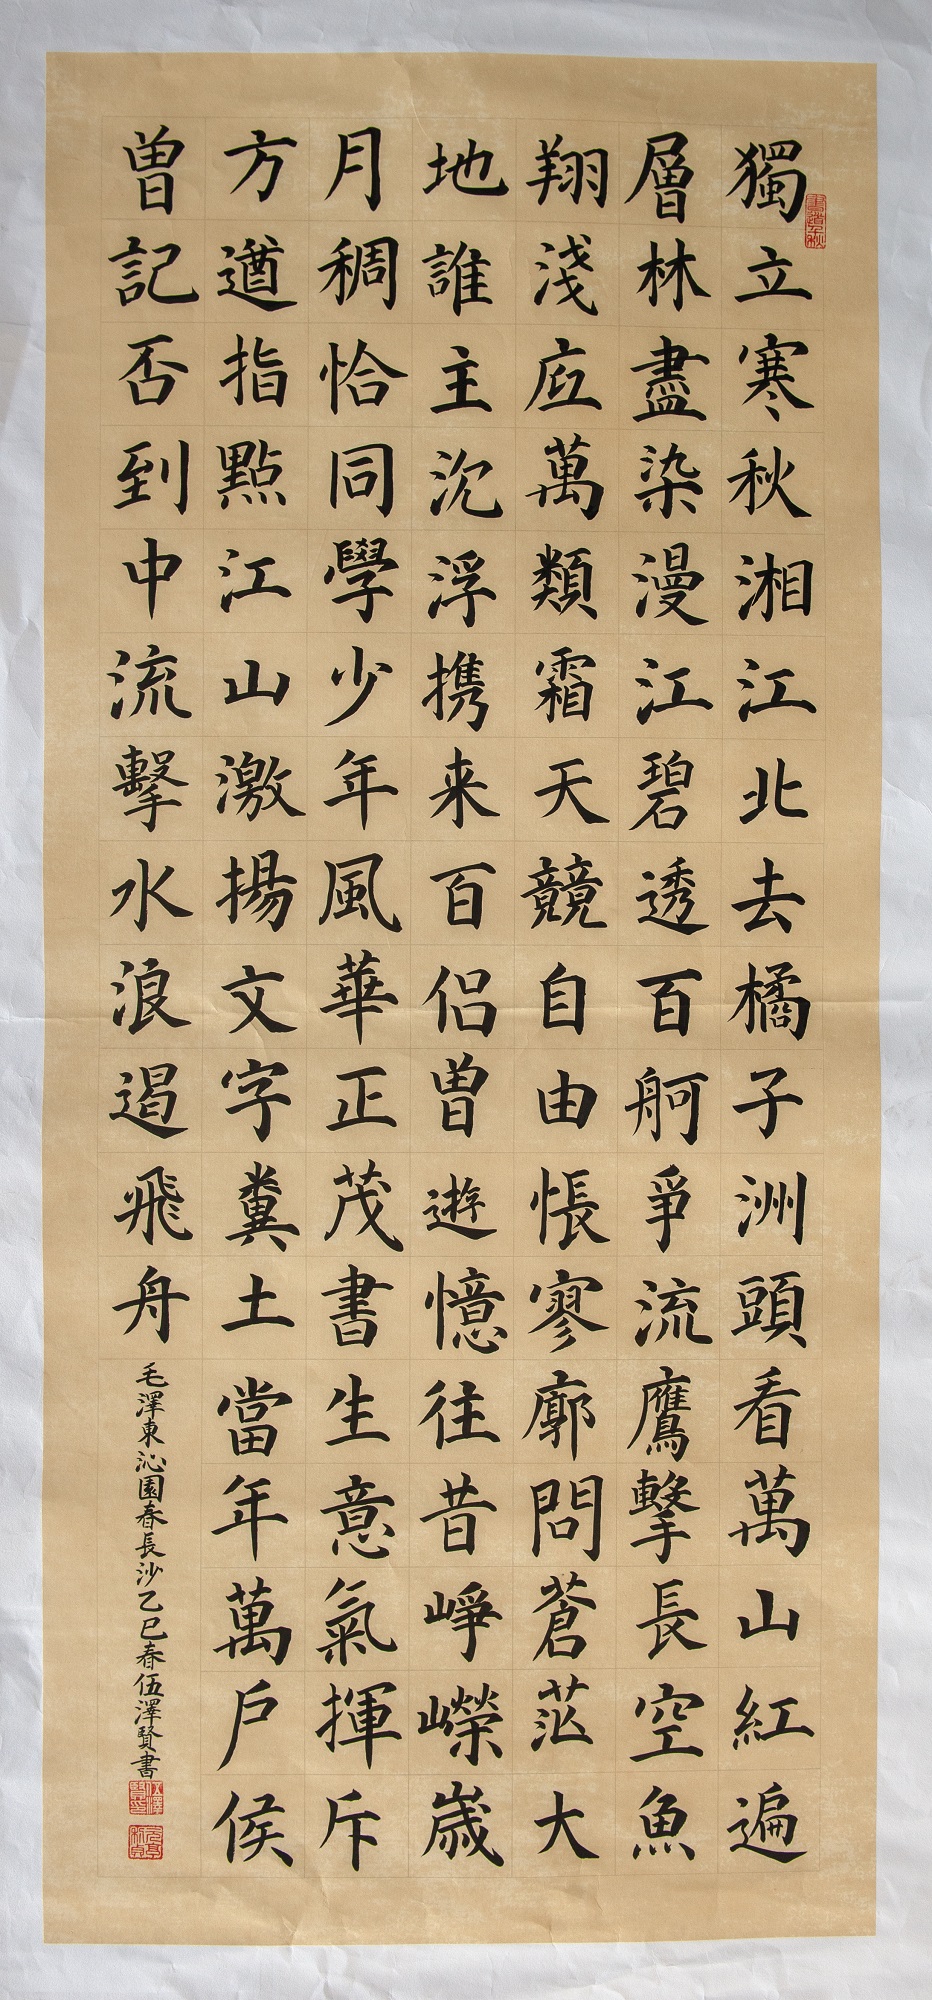 獨立寒秋湘江北去橘子洲頭看萬山紅遍
層林盡染漫江碧透百舸爭流鷹擊長空魚
翔淺底萬類霜天競自由悵寥廓問蒼茫大
地誰主沉浮携来百侣曾遊憶往昔崢嶸歲
月稠恰同學少年風華正茂書生意氣揮斥
方遒指點江山激揚文字糞土當年萬戶侯
曾記否到中流擊水浪遏飛舟
毛澤東沁園春長沙乙巳春伍澤賢書
書道千秋
伍澤賢印